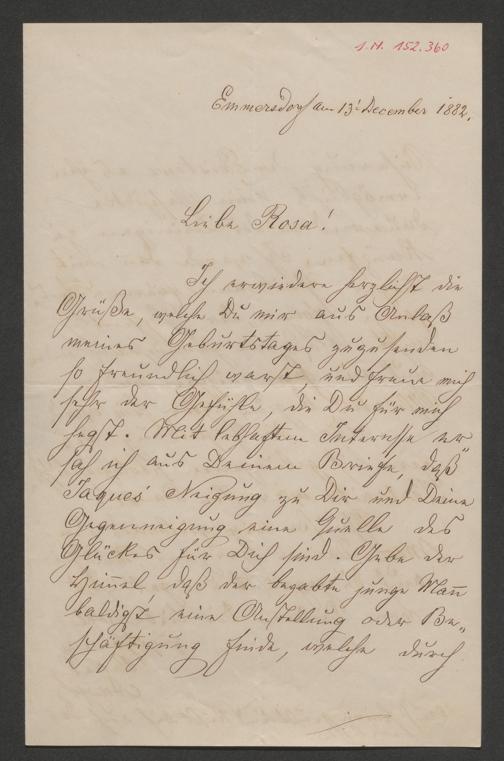 I.N. 152.360
Emmersdorf am 13t December 1882.
Liebe Rosa!
Ich erwiedere herzlichst die
Grüße, welche Du mir aus Anlaß
meines Geburtstages zuzusenden
so freundlich warst, und freue mich
sehr der Gefühle, die Du für mich
hegst. Mit lebhaftem Interesse er
sah ich aus Deinem Briefe, daß
Jaques' Neigung zu Dir und Deine
Gegenneigung eine Quelle des
Glückes für Dich sind. Gebe der
Him̄el, daß der begabte junge Man̄
baldigst eine Anstellung oder Be„
schäftigung finde, welche durch